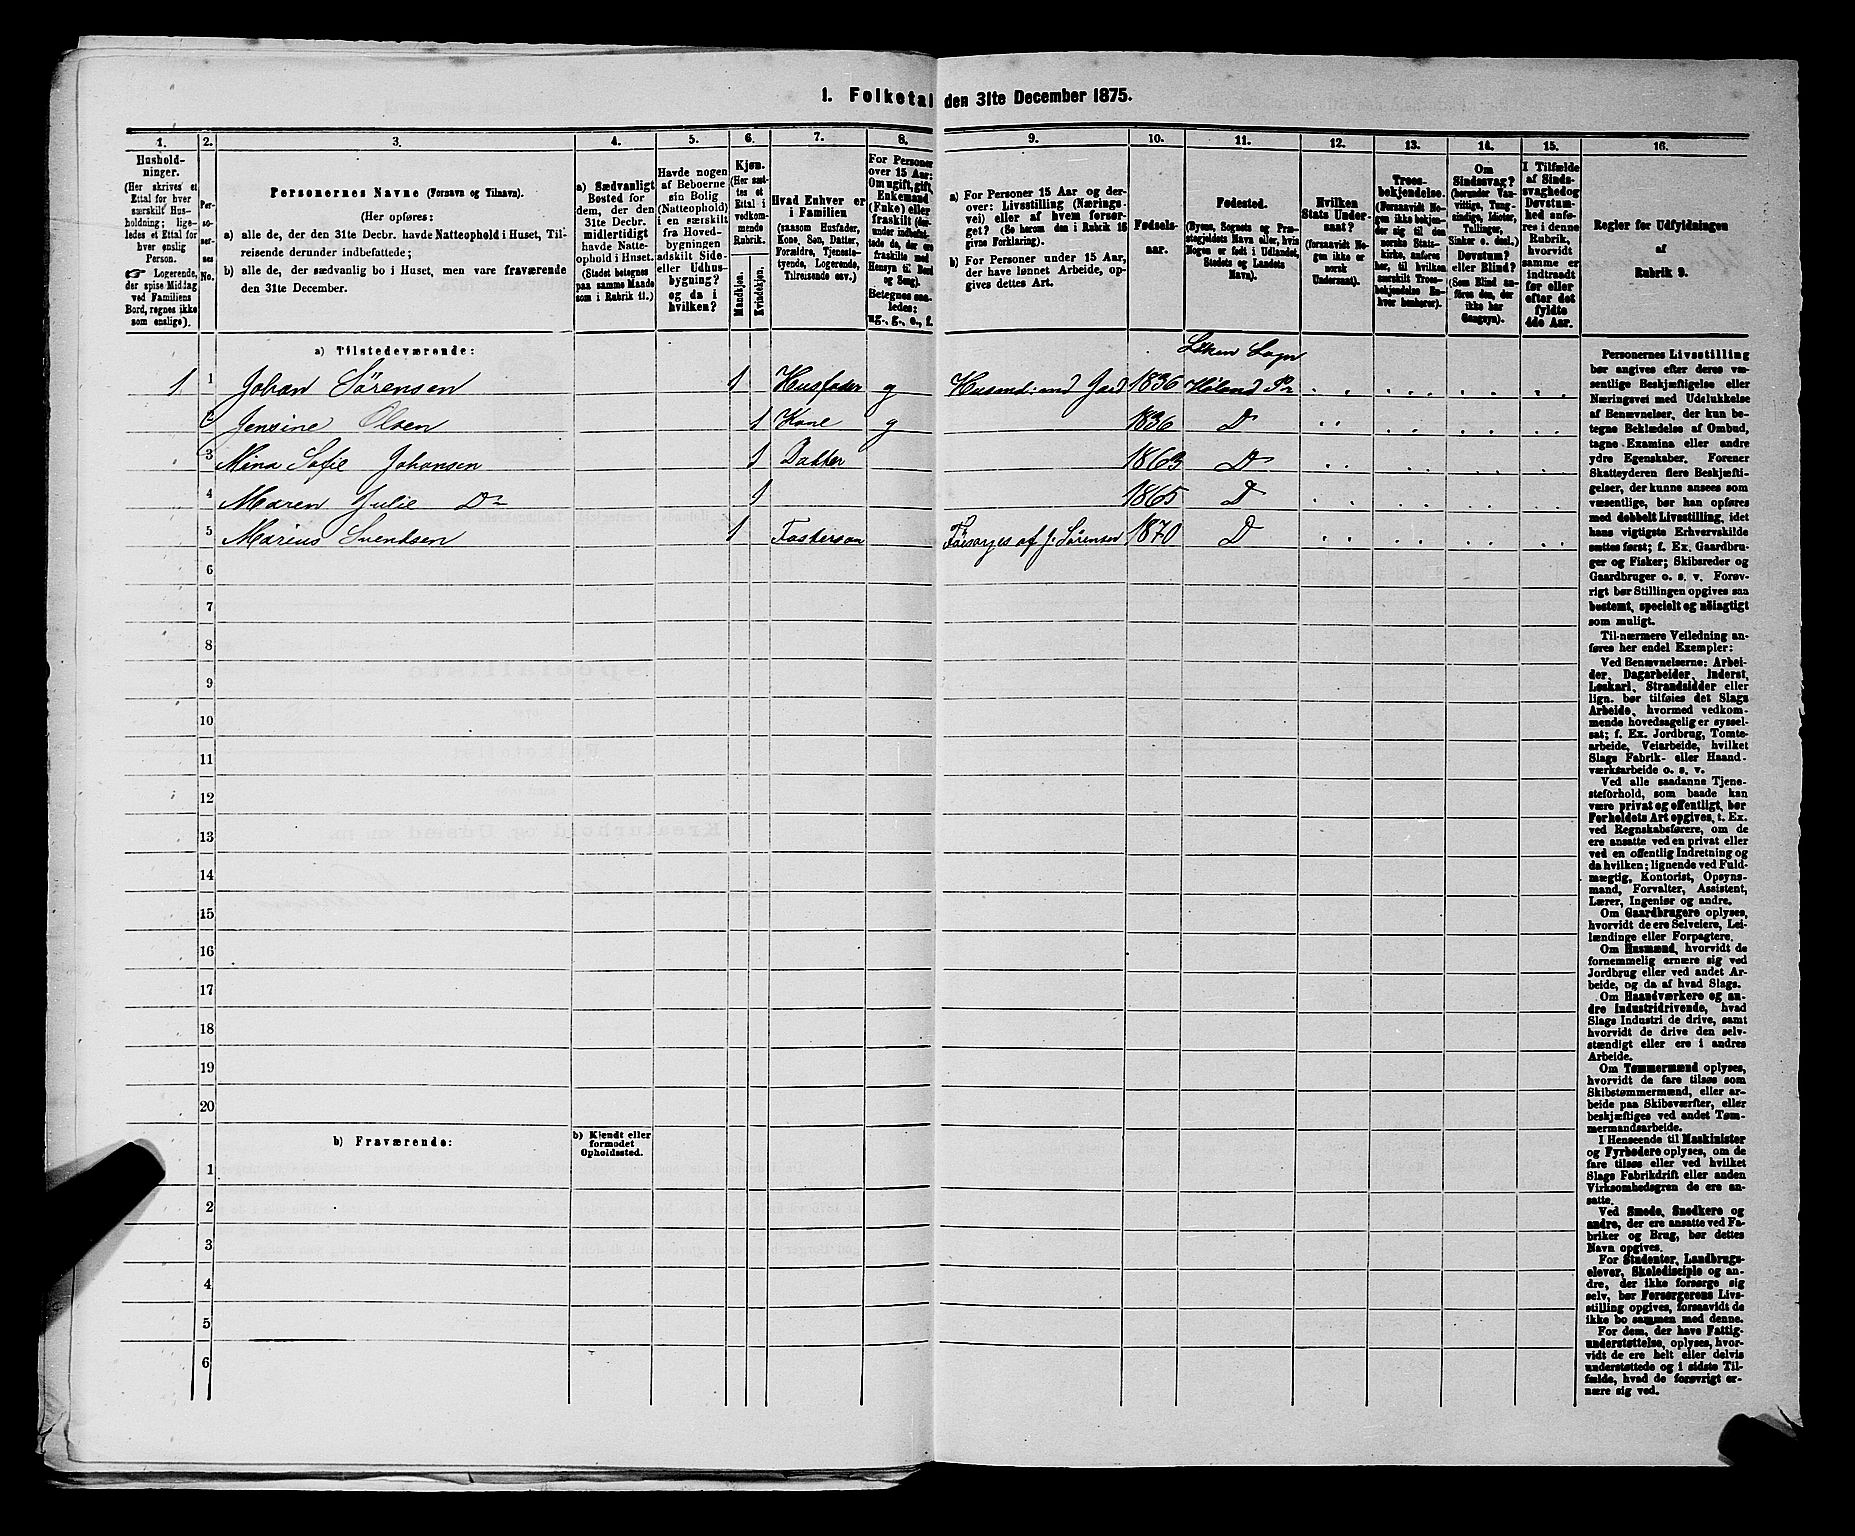 1. Folketal den 31te December 1875.
1. 2. 3. 4. 5. 6. 7. 8. 9. 10. 11. 12. 13. 14. 15. 16.
Hushold-
ninger.
(Her skrives et
Ettal for hver
særskilt Hus-
holdning; lige-
ledes et Ettal for
hver enslig
Person.
☞ Logerende,
der spise Middag
ved Familiens
Bord, regnes ikke
som enslige).
Per-
so-
ner-
nes
No.
Personernes Navne (Fornavn og Tilnavn).
(Her opføres:
a) alle de, der den 31te Decbr. havde Natteophold i Huset, Til-
reisende derunder indbefattede;
b) alle de, der sædvanlig bo i Huset, men vare fraværende
den 31te December.
a) Sædvanligt
Bosted for
dem, der den
31te Decbr.
midlertidigt
havde Natte-
ophold i Huset.
(Stedet betegnes
paa samme Maade
som i Rubrik 11.)
Havde nogen
af Beboerne
sin Bolig
(Natteophold)
i en særskilt
fra Hoved-
bygningen
adskilt Side-
eller Udhus-
bygning?
og da i
hvilken?
Kjøn.
(Her sæt-
tes et
Ettal i
vedkom-
mende
Rubrik.
Mandkjøn.
Kvindekjøn.
Hvad Enhver er
i Familien
(saasom Husfader,
Kone, Søn, Datter,
Forældre, Tjeneste-
tyende, Logerende,
Tilreisende osv.)
For Personer
over 15 Aar:
Om ugift, gift,
Enkemand
(Enke) eller
fraskilt (der-
under indbefat-
tede de, der ere
fraskilte med
Hensyn til Bord
og Seng).
Betegnes saa-
ledes:
ug., g., e., f.
a) For Personer 15 Aar og der-
over: Livsstilling (Nærings-
vei) eller af hvem forsør-
get? (Se herom den i Rubrik 16
givne Forklaring).
b) For Personer under 15 Aar,
der have lønnet Arbeide, op-
gives dettes Art.
Fødsels-
aar.
Fødested.
(Byens, Sognets og Præ-
stegjeldets Navn eller, hvis
Nogen er født i Udlandet,
Stedets og Landets
Navn).
Hvilken
Stats Under-
saat?
(forsaavidt No-
gen ikke er
norsk
Undersaat).
Troes-
bekjendelse.
(Forsaavidt No-
gen ikke bekjen-
der sig til den
norske Stats-
kirke, anføres
her, til hvilken
særskilt Troes-
bekjendelse En-
hver henhører).
Om
Sindssvag?
(herunder Van-
vittige, Tung-
sindige, Idioter,
Tullinger,
Sinker o. desl.)
Døvstum?
eller Blind?
(Som Blind an-
føres den, der
ikke har
Gangsyn).
I Tilfælde
af Sinds-
svaghed og
Døvstum-
hed anfø-
res i denne
Rubrik,
hvorvidt
samme er
indtraadt
før eller
efter det
fyldte
4de Aar.
Regler for Udfyldningen
af
Rubrik 9.
a) Tilstedeværende:
Løken Sogn
1 1 Johan Sørensen 1 Husfader g Husmd: med Jord 1836 Høland Pr
2 Jensine Olsen 1 Kone g 1836 D
3 Mina Sofie Johansen 1 Datter 1863 D
4 Maren Julie Do 1 1865 D
5 Marius Svendsen 1 Fosterson Forsørges af J. Sørensen 1870 D
6
7
8
9
10
11
12
13
14
15
16
17
18
19
20
b) Fraværende:
b) Kjendt eller
formodet
Opholdssted.
1
2
3
4
5
6
Personernes Livsstilling
bør angives efter deres væ-
sentlige Beskjæftigelse eller
Næringsvei med Udelukkelse
af Benævnelser, der kun be-
tegne Beklædelse af Ombud,
tagne Examina eller andre
ydre Egenskaber. Forener
Skatteyderen flere Beskjæfti-
gelser, der kunne ansees som
væsentlige, bør han opføres
med dobbelt Livsstilling, idet
hans vigtigste Erhvervskilde
sættes først; f. Ex. Gaardbru-
ger og Fisker; Skibsreder og
Gaardbruger o. s. v. Forøv-
rigt bør Stillingen opgives saa
bestemt, specielt og nøiagtigt
som muligt.
Til nærmere Veiledning an-
føres her endel Exempler:
Ved Benævnelserne: Arbei-
der, Dagarbeider, Inderst,
Løskarl, Strandsidder eller
lign. bør tilføies det Slags
Arbeide, hvormed vedkom-
mende hovedsagelig er syssel-
sat; f. Ex. Jordbrug, Tomte-
arbeide, Veiarbeide, hvilket
Slags Fabrik- eller Haand-
værksarbeide o. s. v.
Ved alle saadanne Tjene-
steforhold, som baade kan
være privat og offentligt, bør
Forholdets Art opgives, t. Ex.
ved Regnskabsførere, om de
ere ansatte ved en privat eller
ved en offentlig Indretning og
da hvilken; lignende ved Fuld-
mægtig, Kontorist, Opsyns-
mand, Forvalter, Assistent,
Lærer, Ingeniør og andre.
Om Gaardbrugere oplyses,
hvorvidt de ere Selveiere, Lei-
lændinge eller Forpagtere.
Om Husmænd, hvorvidt de
fornemmelig ernære sig ved
Jordbrug eller ved andet Ar-
beide, og da af hvad Slags.
Om Haandværkere og an-
dre Industridrivende, hvad
Slags Industri de drive, samt
hvorvidt de drive den selv-
stændigt eller ere i andres
Arbeide.
Om Tømmermænd oplyses,
hvorvidt de fare tilsøs som
Skibstømmermænd, eller ar-
beide paa Skibsværfter, eller
beskjæftiges ved andet Tøm-
mermandsarbeide.
I Henseende til Maskinister
og Fyrbødere oplyses, om de
fare tilsøs eller ved hvilket
Slags Fabrikdrift eller anden
Virksomhedsgren de ere an-
satte.
Ved Smede, Snedkere og
andre, der ere ansatte ved Fa-
briker og Brug, bør dettes
Navn opgives.
For Studenter, Landbrugs-
elever, Skoledisciple og an-
dre, der ikke forsørge sig
selv, bør Forsørgerens Livs-
stilling opgives, forsaavidt de
ikke bo sammen med denne.
For dem, der have Fattig-
understøttelse, oplyses, hvor-
vidt de ere helt eller delvis
understøttede og i sidste Til-
fælde, hvad de forøvrigt er-
nære sig ved.